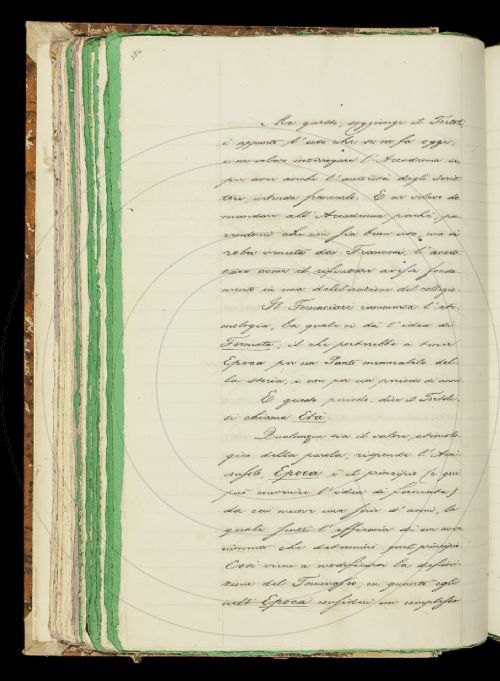 184
Ma questo, soggiunge il Tortoli,
è appunto l'uso che se ne fa oggi;
e ne voleva interrogare l'Accademia se
pur con anche l'autorità degli Scrit-
tori, intenda francarlo. E se volevo do-
mandare all'Accademia perché, pa-
rendomi che non sia bean uso, ma si
roba venuta dai Francesi, l'accet-
tare come il rifiutare avesse fonda-
mento in una deliberazione del collegio.
Il Fornaciari rammenta l'eti-
mologia, la quale ci dà l'idea di
Fermata; il che porterebbe a tener
Epoca per un Punto memorabile del-
la storia, e non per un periodo di anni.
E questo periodo, dice il Tortoli,
si chiama Età.
Qualunque sia il valore etimolo-
gico della parola, risponde l'Arci-
consolo, Epoca è il principio (e qui
può convenire l'idea di fermata)
da cui muove una serie d'anni, la
quale sente l'efficacia di un avve-
nimento che determinò quel principio.
Così viene a modificarsi la defini-
zione del Tommaseo, in quanto egli
nell'Epoca consideri un complesso